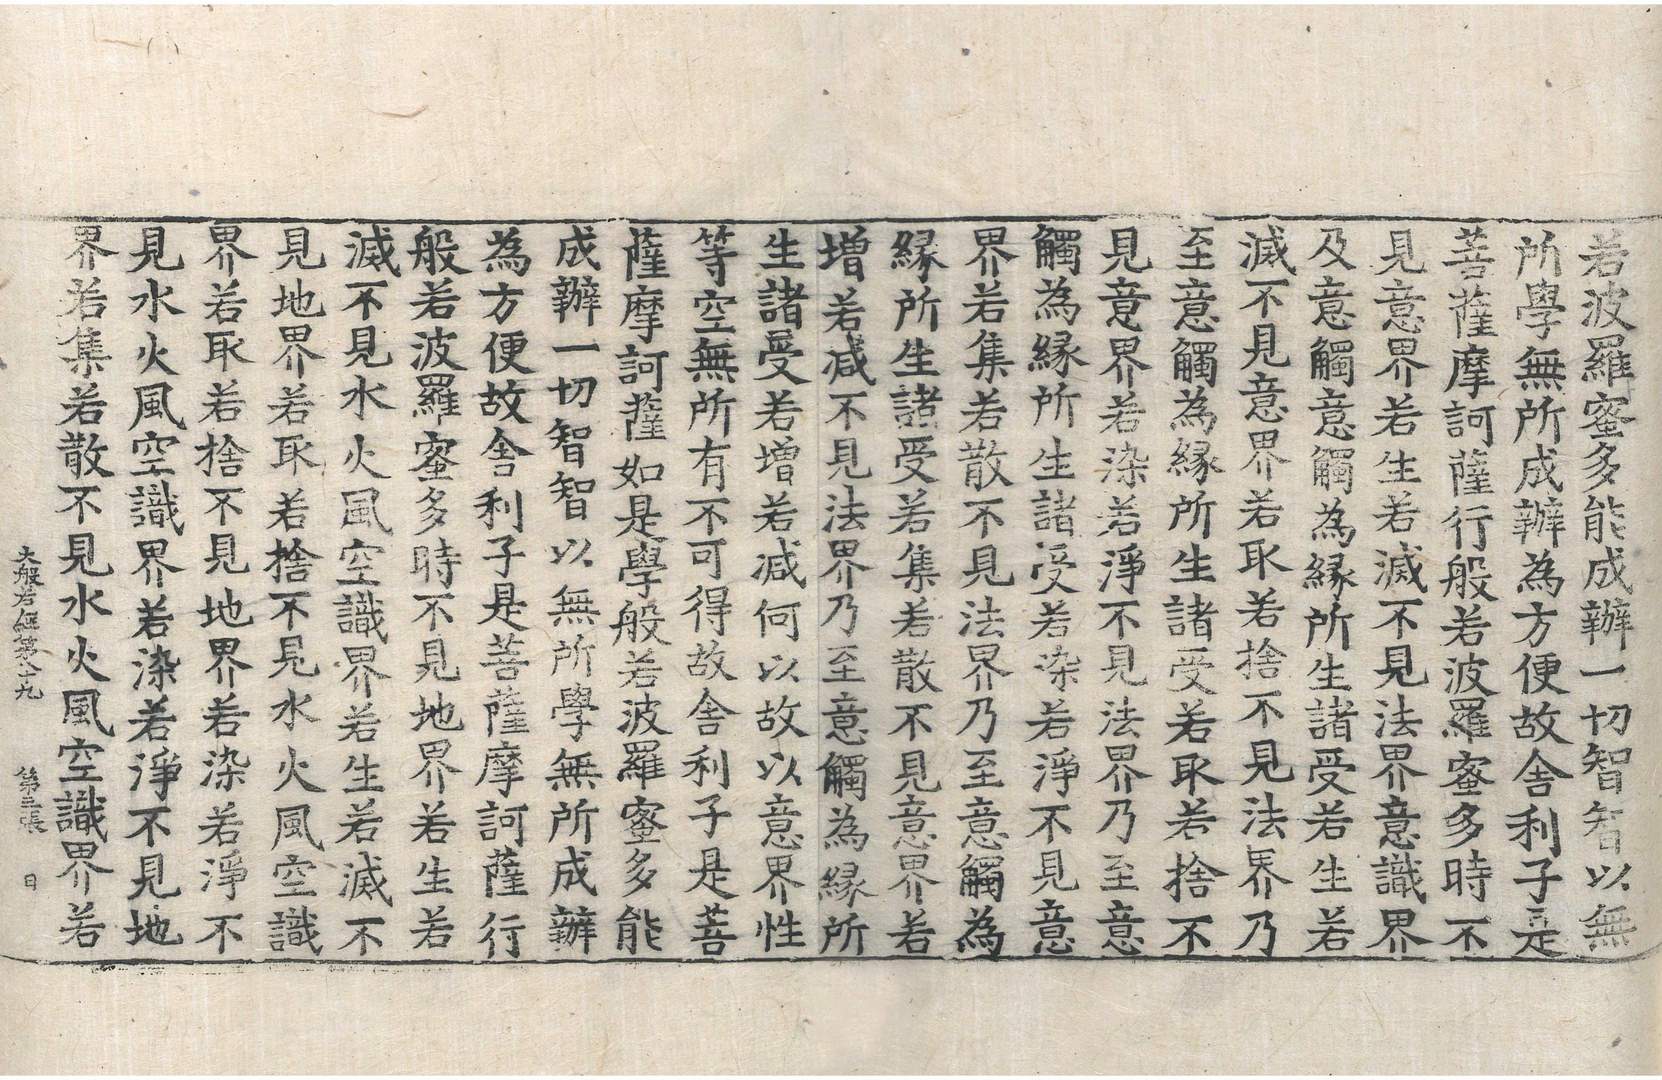 若波羅蜜多能成辦一切智智以無
所學無所成辦為方便故舍利子是
菩薩摩訶薩行般若波羅蜜多時不
見意界若生若滅不見法界意識界
及意觸意觸為緣所生諸受若生若
滅不見意界若取若捨不見法界乃
至意觸為緣所生諸受若取若捨不
見意界若染若淨不見法界乃至意
觸為緣所生諸受若染若淨不見意
界若集若散不見法界乃至意觸為
緣所生諸受若集若散不見意界若
增若減不見法界乃至意觸為緣所
生諸受若增若減何以故以意界性
等空無所有不可得故舍利子是菩
薩摩訶薩如是學般若波羅蜜多能
成辦一切智智以無所學無所成辦
為方便故舍利子是菩薩摩訶薩行
般若波羅蜜多時不見地界若生若
滅不見水火風空識界若生若滅不
見地界若取若捨不見水火風空識
界若取若捨不見地界若染若淨不
見水火風空識界若染若淨不見地
界若集若散不見水火風空識界若
大般若經第八十九 第三張 日